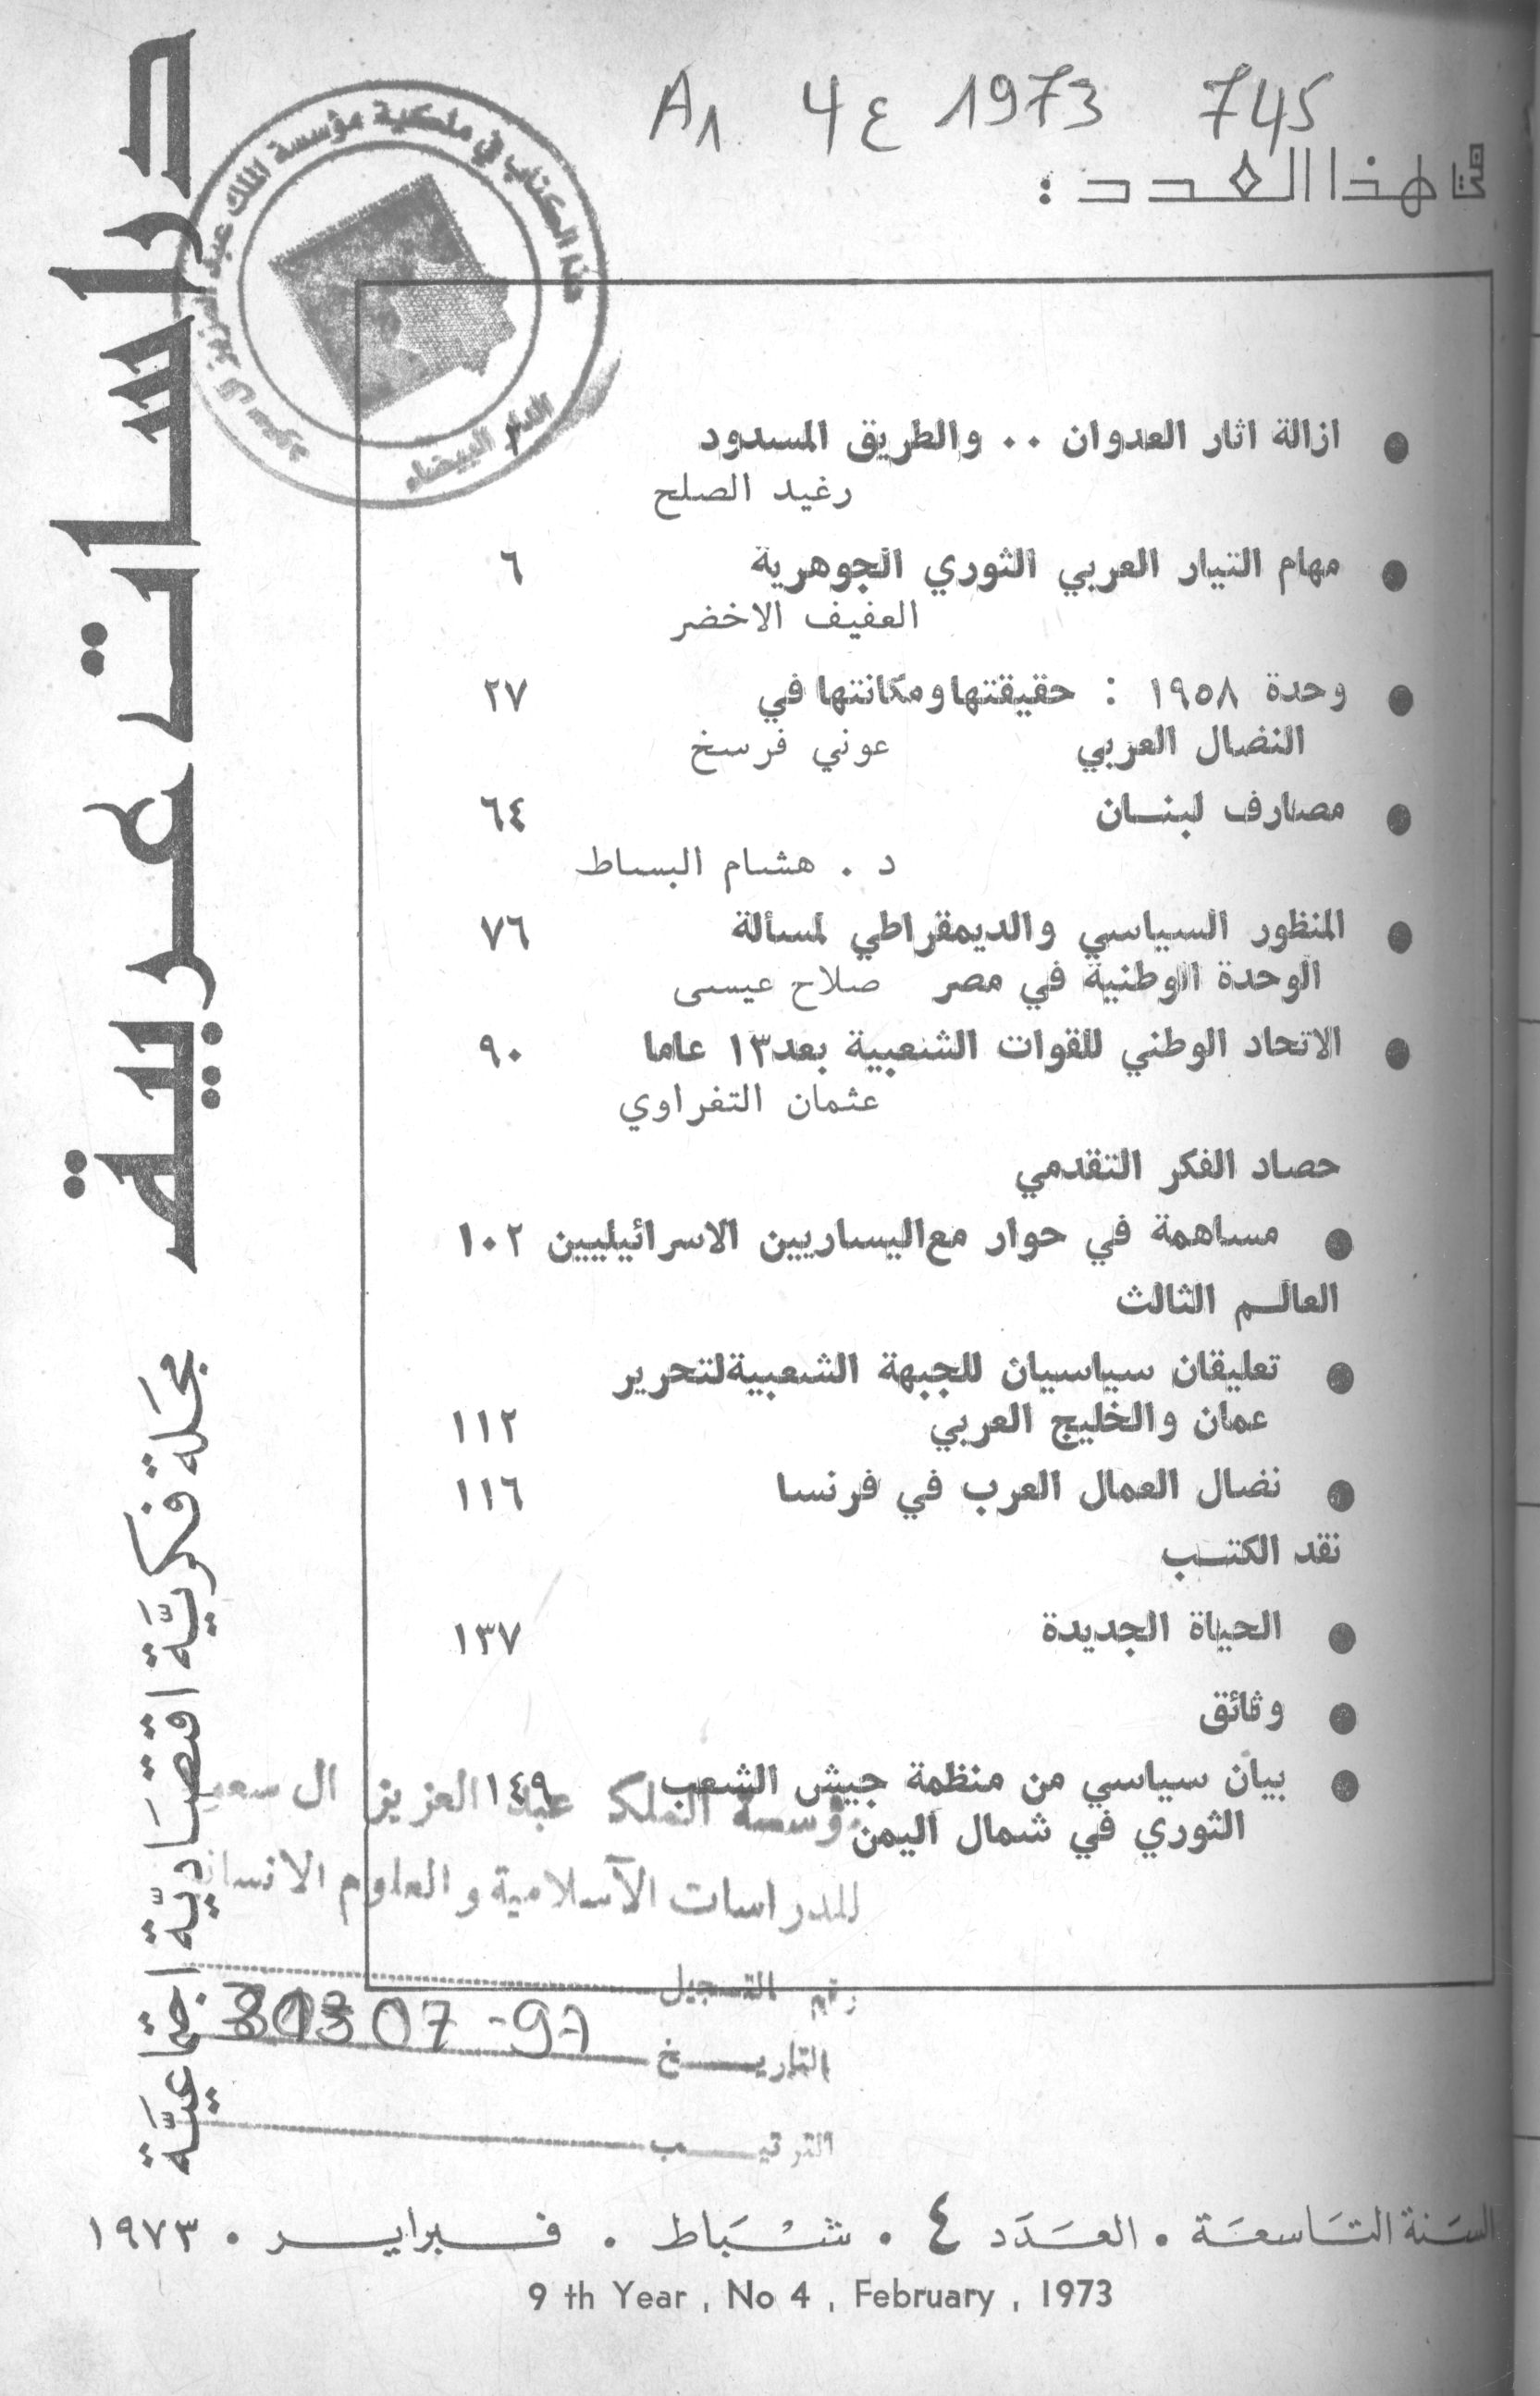 A1 4٤ 1973 745
هذا العدد :
دراسات عربية
مجلة فكرية اقتصادية اجتماعية
هذا الكتاب في ملكية مؤسسة الملك عبد العزيز آل سعود
الدار البيضاء
● ازالة اثار العدوان ٠٠ والطريق المسدود
رغيد الصلح
● مهام التيار العربي الثوري الجوهرية ٦
العفيف الاخضر
● وحدة ١٩٥٨ : حقيقتها ومكانتها في ٢٧
النضال العربي عوني فرسخ
● مصارف لبنــان ٦٤
د . هشام البساط
● المنظور السياسي والديمقراطي لمسألة ٧٦
الوحدة الوطنية في مصر صلاح عيسى
● الاتحاد الوطني للقوات الشعبية بعد ١٣ عاما ٩٠
عثمان التفراوي
حصاد الفكر التقدمي
● مساهمة في حوار مع اليساريين الاسرائيليين ١٠٢
العالــم الثالث
● تعليقان سياسيان للجبهة الشعبية لتحرير
عمان والخليج العربي ١١٢
● نضال العمال العرب في فرنسا ١١٦
نقد الكتــب
● الحياة الجديدة ١٣٧
● وثائق
● بيان سياسي من منظمة جيش الشعب ١٤٩
الثوري في شمال اليمن
مؤسسة الملك عبد العزيز ال سعود
للدراسات الاسلامية والعلوم الانسانية
رقم التسجيل
التاريــــخ
الترتيـــب
السنة التاسعة ٠ العدد ٤ ٠ شباط ٠ فبراير ٠ ١٩٧٣
9 th Year , No 4 , February , 1973